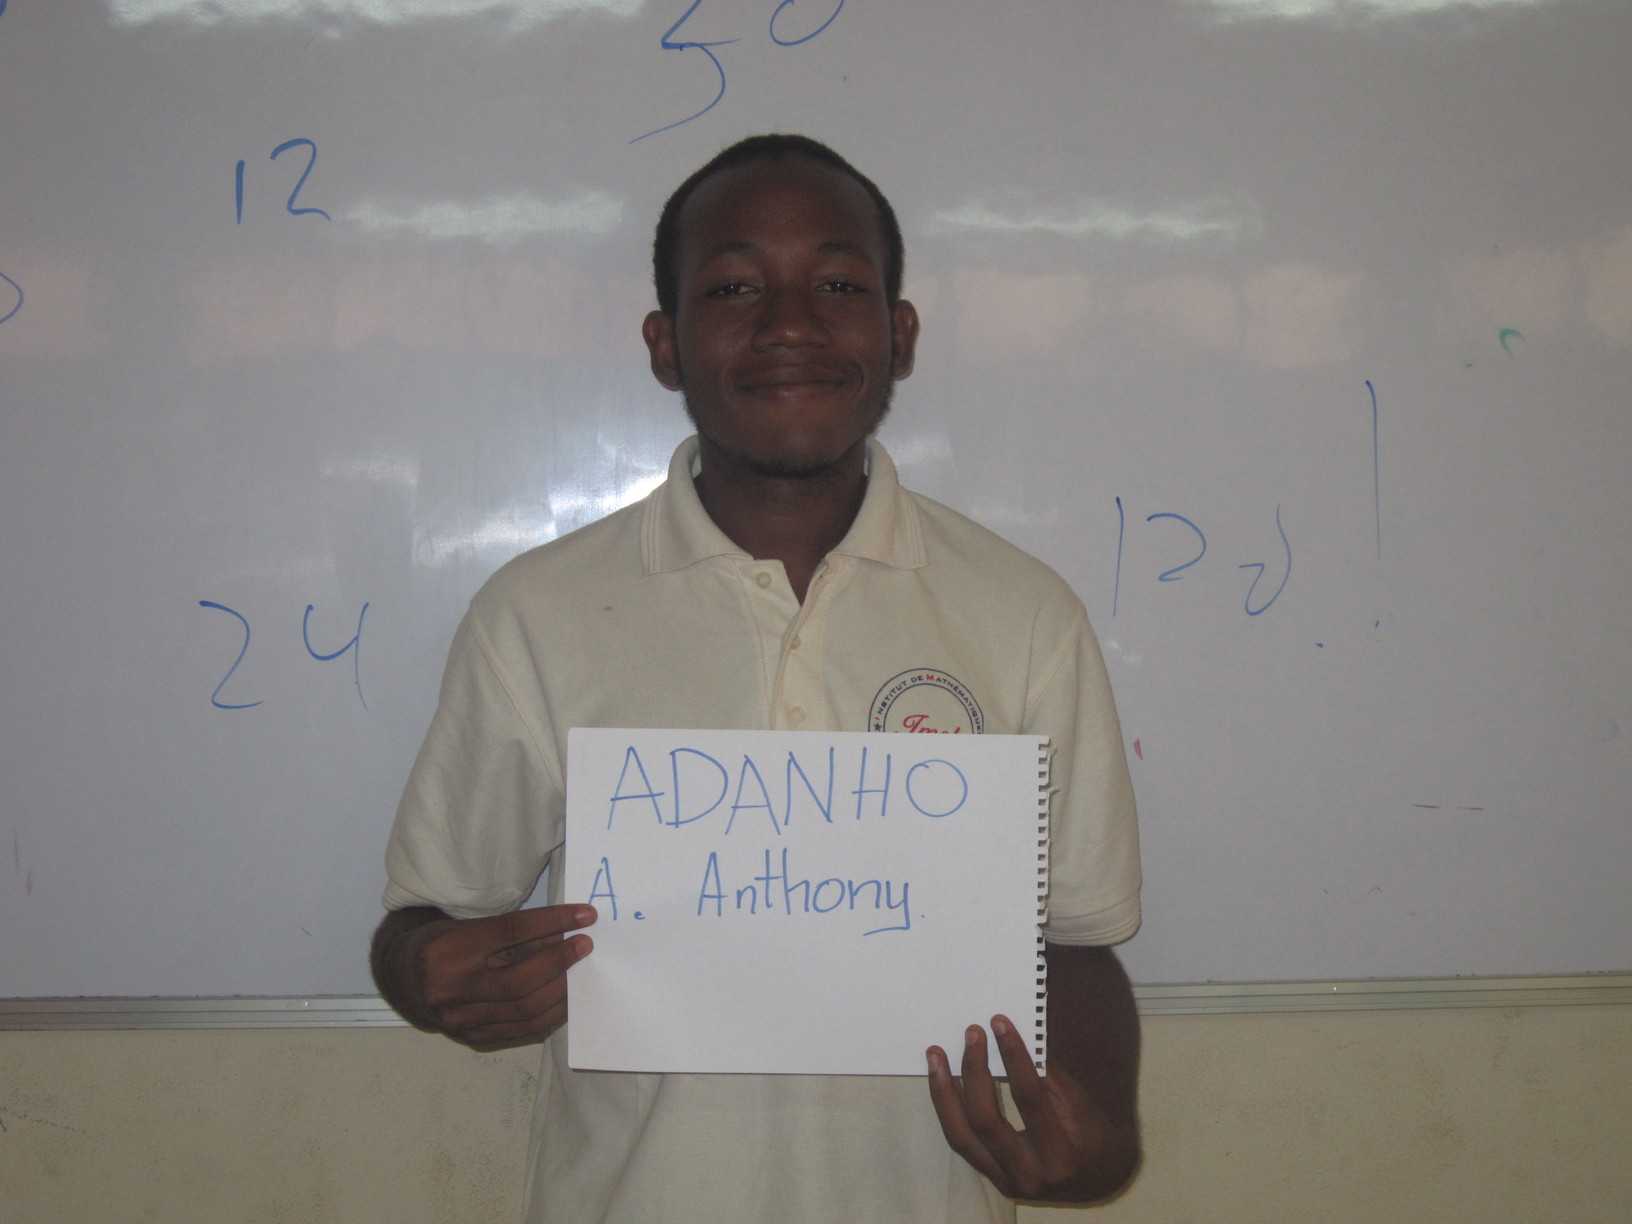 50
12
24
INSTITUT DE MATHÉMATIQUES
ADANHO
A. Anthony.